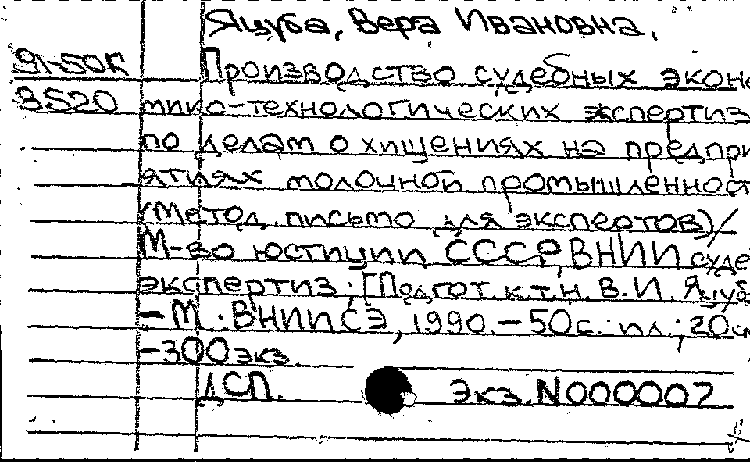 Яцуба, Вера Ивановна.
Я-50К Производство судебных эконо
3520 мико-технологических экспертиз
по делам о хищениях на предпри
ятиях молочной промышленност
(Метод. письмо для экспертов)/
М-во юстиции СССР, ВНИИ суде
экспертиз; [Подгот. к.т.н. В.И. Яцуб
- М.: ВНИИСЭ, 1990. - 50с.: ил.; 20с
- 300 экз.
ДСП. Экз. N000007